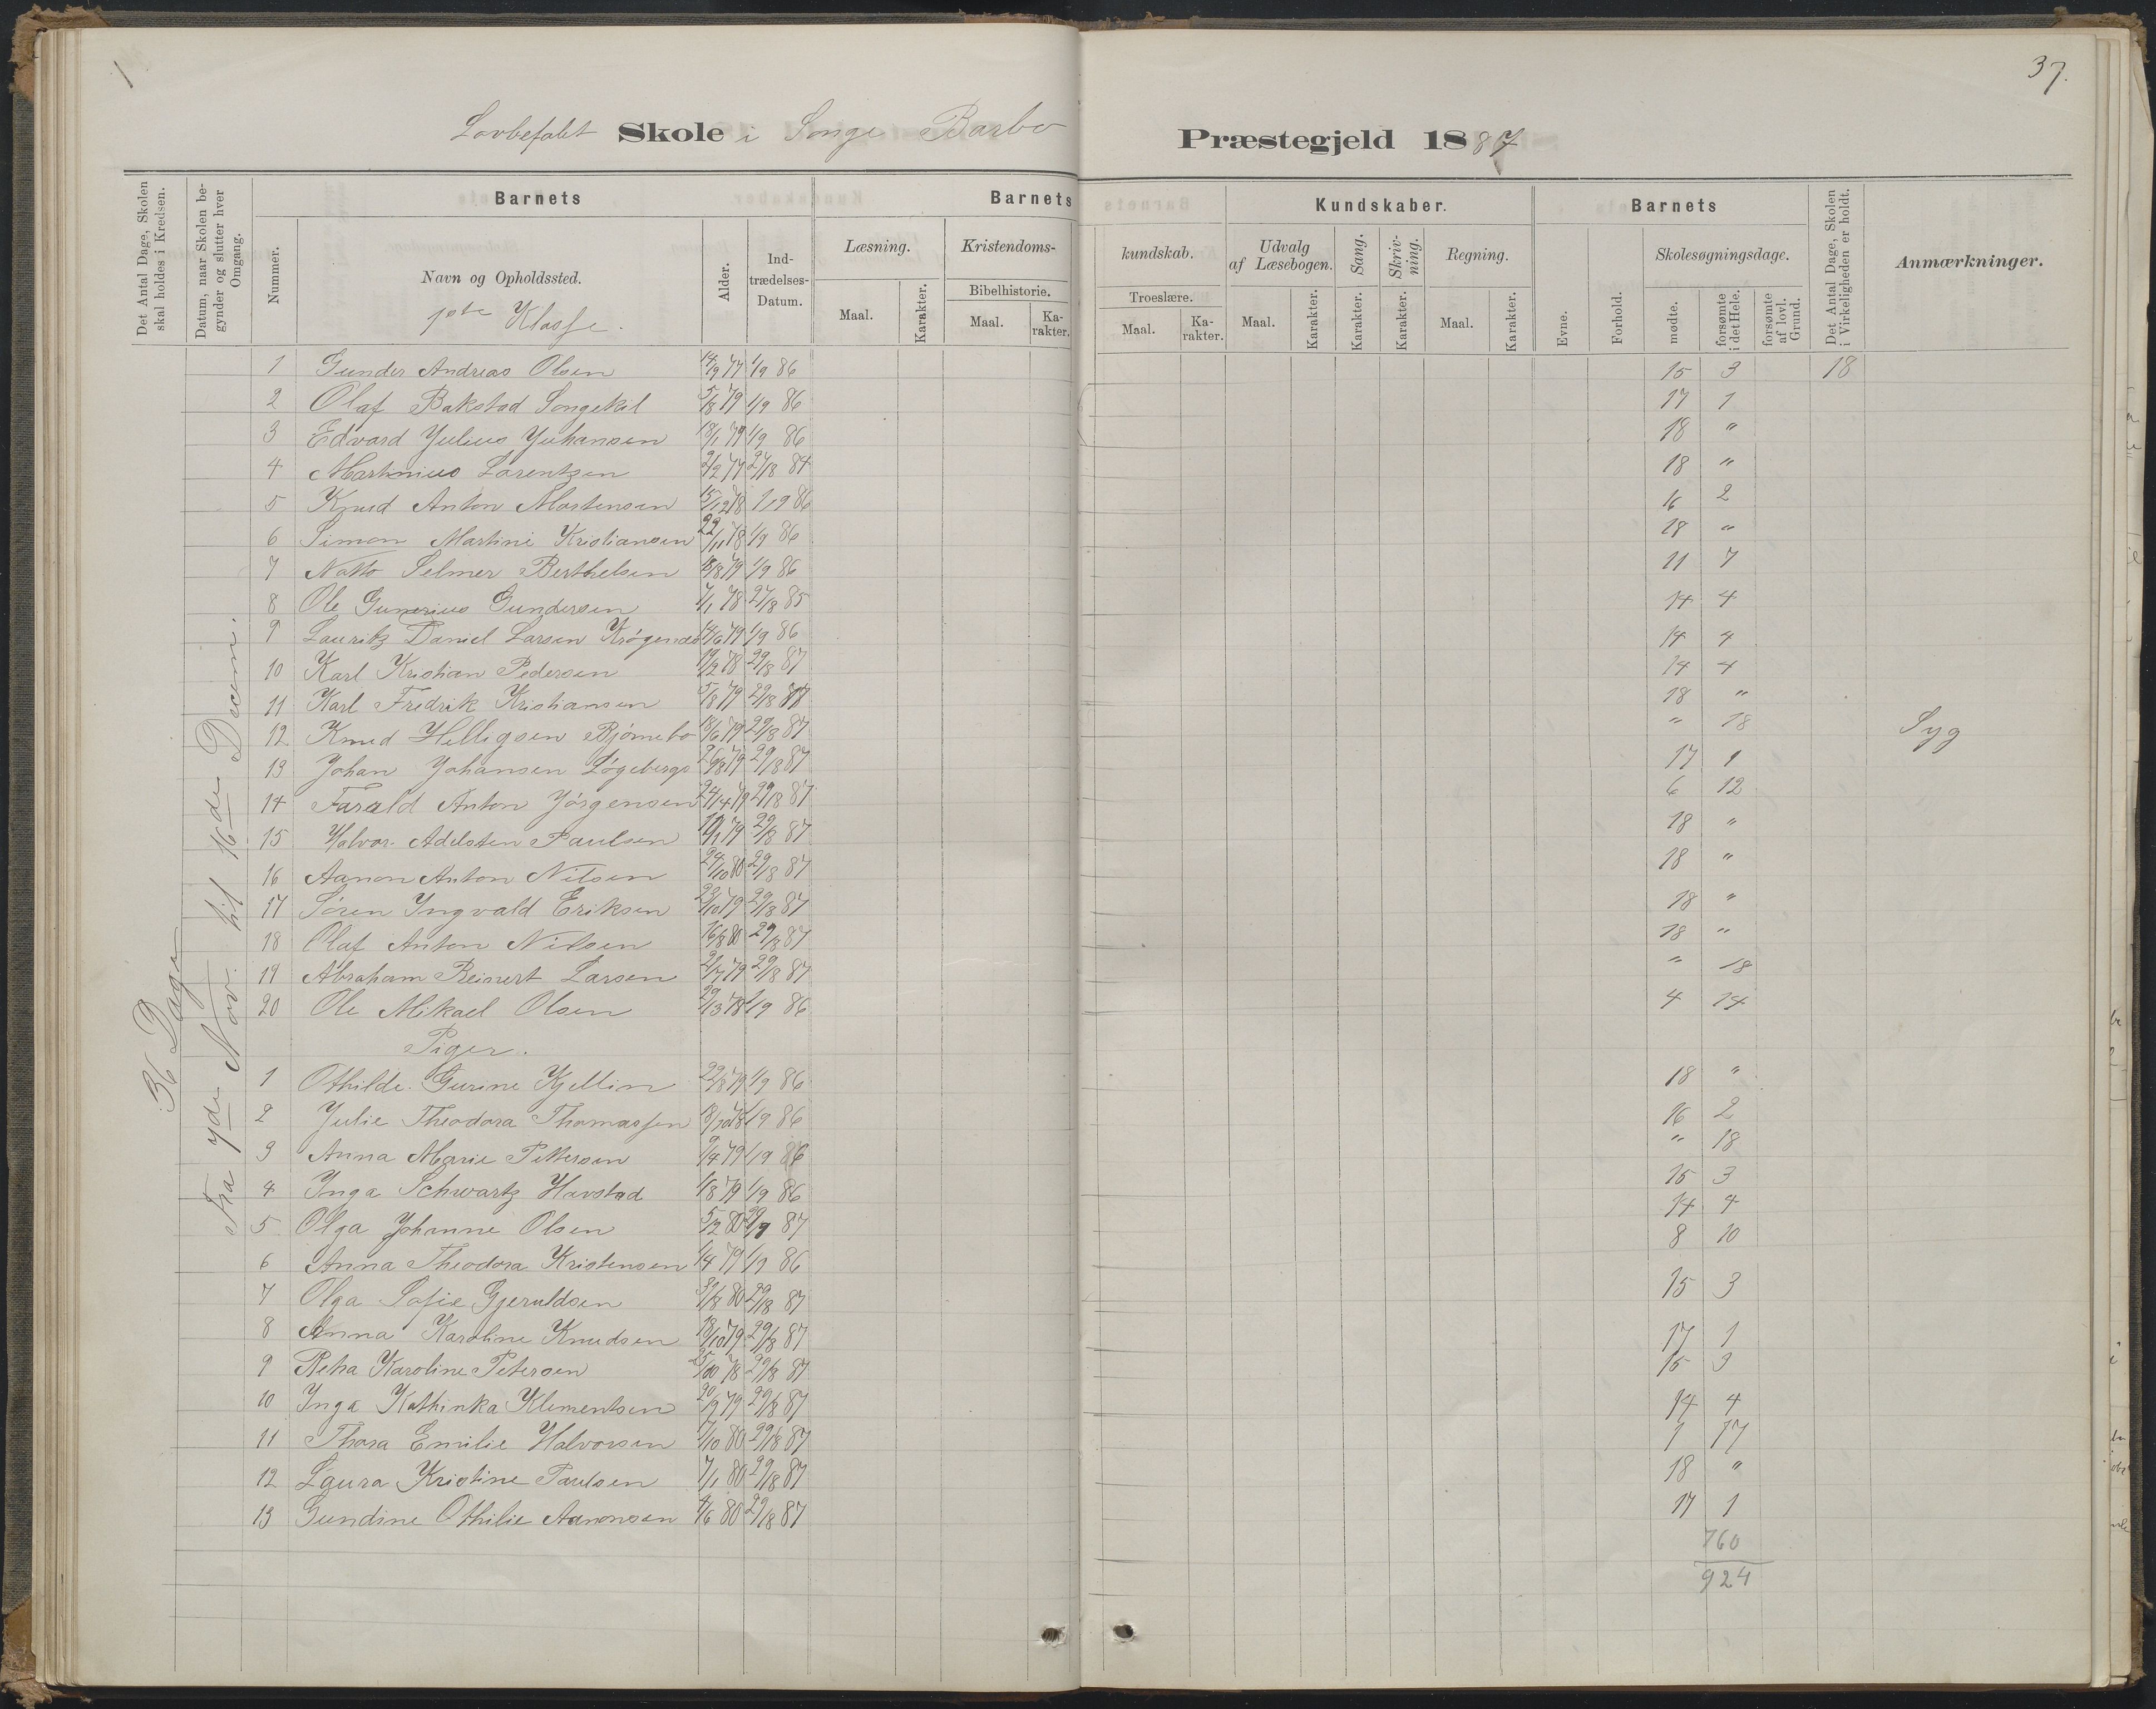 37.
Lovbefalet Skole i Songe Barbo Præstegjeld 1887
Det Antal Dage, Skolen skal holdes i Kredsen.
Datum, naar Skolen begynder og slutter hver Omgang.
Barnets
Nummer.
Navn og Opholdssted.
1ste Klasse.
Alder.
Indtrædelses-Datum.
Barnets Kundskaber.
Læsning.
Maal.
Karakter.
Kristendomskundskab.
Bibelhistorie.
Maal.
Karakter.
Troeslære.
Maal.
Karakter.
Udvalg af Læsebogen.
Maal.
Karakter.
Sang.
Karakter.
Skrivning.
Karakter.
Regning.
Maal.
Karakter.
Barnets
Evne.
Forhold.
Skolesøgningsdage.
mødte.
forsømte i det Hele.
forsømte af lovl. Grund.
Det Antal Dage, Skolen i Virkeligheden er holdt.
Anmærkninger.
36 Dage
Fra 7de Nov. til 16de Decem.
1 Gunder Andreas Olsen 14/9 77 1/9 86 15 3 18
2 Olaf Bakstad Songekil 5/8 79 1/9 86 17 1
3 Edvard Julius Juhansen 18/1 79 1/9 86 18 "
4 Martinius Larentzen 2/2 77 27/8 84 18 "
5 Knud Anton Mortensen 15/12 78 1/9 86 16 2
6 Simon Martini Kristiansen 22/11 78 1/9 86 18 "
7 Natto Selmer Berthelsen 18/8 79 1/9 86 11 7
8 Ole Gunerius Gundersen 7/1 78 27/8 85 14 4
9 Lauritz Daniel Larsen Krøgenæs 14/6 79 1/9 86 14 4
10 Karl Kristian Pedersen 19/2 78 29/8 87 14 4
11 Karl Fredrik Kristiansen 5/8 79 29/8 87 18 "
12 Knud Helligsen Bjørnebo 18/6 79 29/8 87 " 18 Syg
13 Johan Johansen Løgebergs 26/8 79 29/8 87 17 1
14 Farald Anton Jørgensen 24/4 79 29/8 87 6 12
15 Halvor Adelsten Paulsen 11/1 79 29/8 87 18 "
16 Aanon Anton Nilsen 24/10 80 29/8 87 18 "
17 Søren Yngvald Eriksen 23/10 79 29/8 87 18 "
18 Olaf Anton Nilsen 16/8 80 29/8 87 18 "
19 Abraham Reinert Larsen 2/7 79 29/8 87 " 18
20 Ole Mikael Olsen 29/3 78 1/9 86 4 14
Piger.
1 Othilde Gurine Kjellin 22/8 79 1/9 86 18 "
2 Julie Theodora Thomassen 18/10 78 1/9 86 16 2
3 Anna Marie Pettersen 9/4 79 1/9 86 " 18
4 Inga Schwartz Havstad 1/8 79 1/9 86 15 3
5 Olga Johanne Olsen 5/2 80 29/9 87 14 4
6 Anna Theodora Kristensen 1/4 79 1/9 86 8 10
7 Olga Sofie Gjeruldsen 31/8 80 29/8 87 15 3
8 Anna Karoline Knudsen 18/10 79 29/8 87 17 1
9 Reha Karoline Petersen 25/10 78 29/8 87 15 3
10 Inga Kathinka Klementsen 20/2 79 29/8 87 14 4
11 Thora Emilie Halvorsen 1/10 80 29/8 87 1 17
12 Laura Kristine Paulsen 7/1 80 29/8 87 18 "
13 Gundine Othilie Aanonsen 4/6 80 29/8 87 17 1
160
924